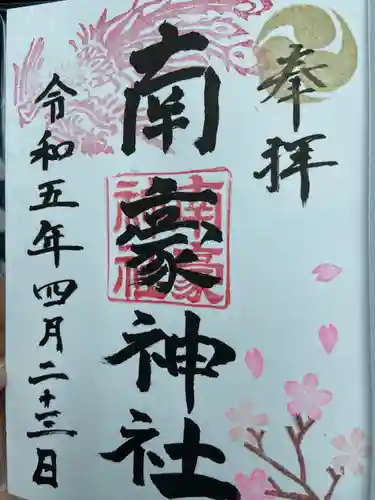 奉拝
南豪神社
南豪
神社
令和五年四月二十三日